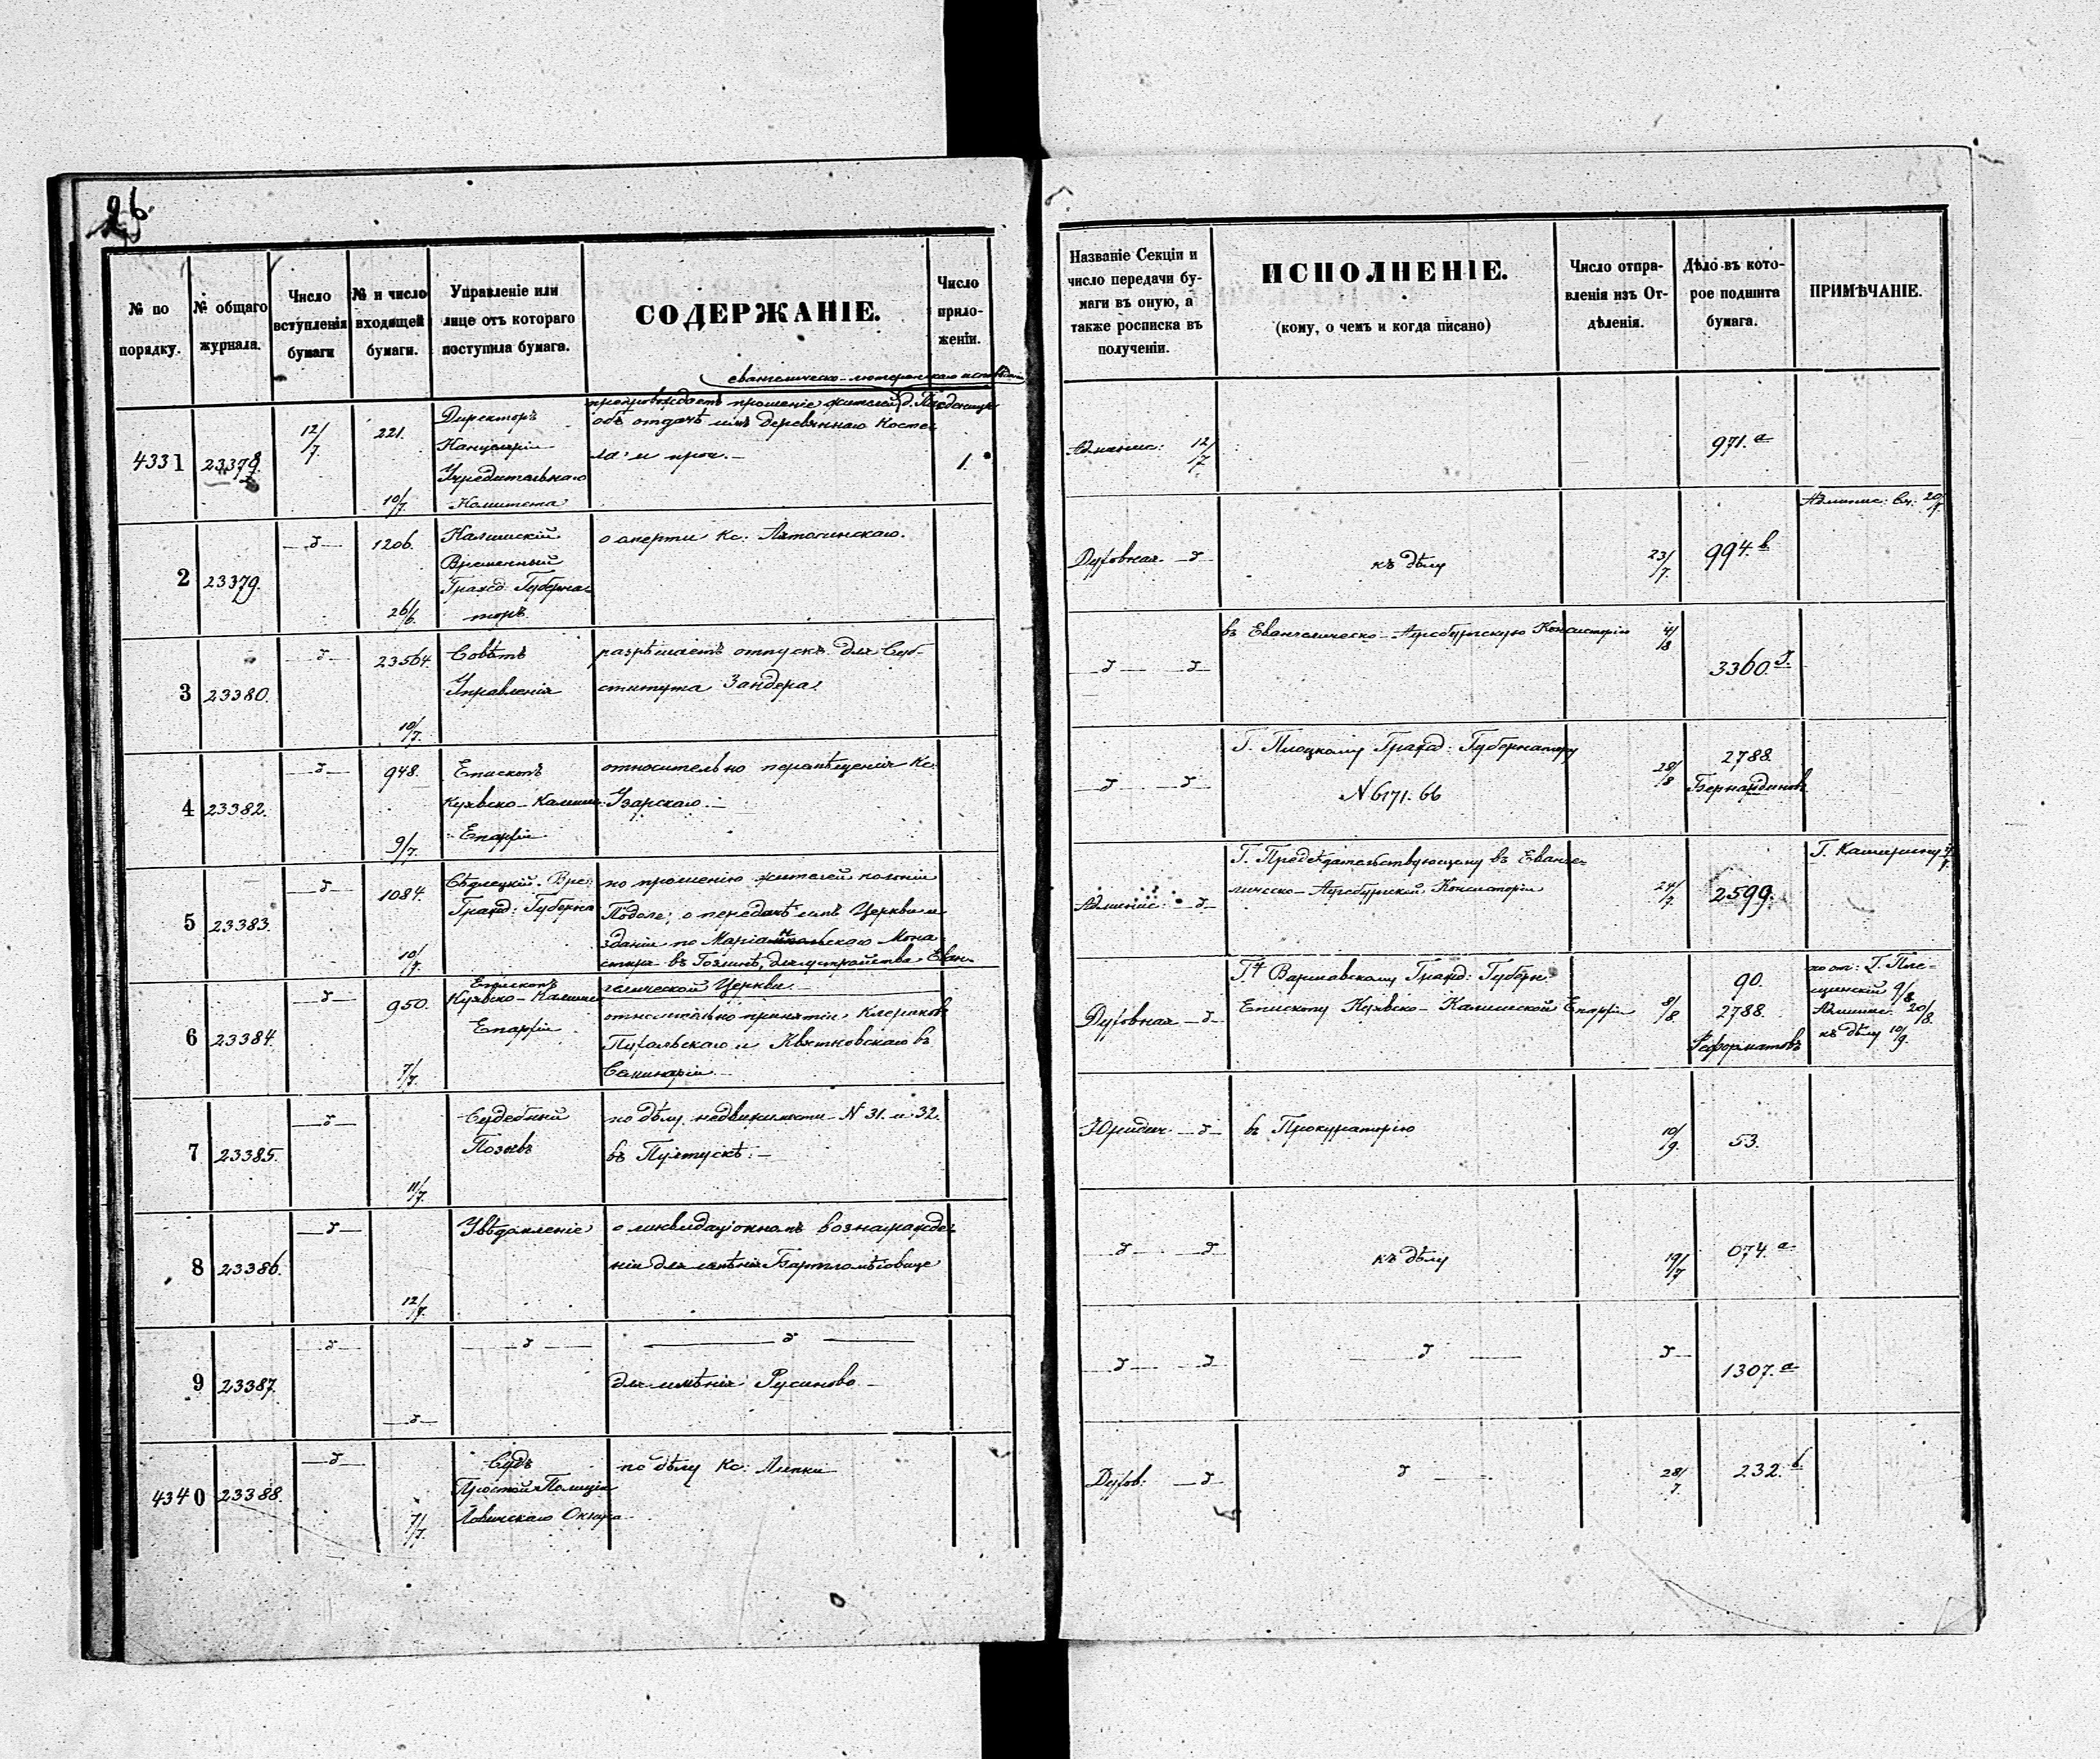 26
№ по
порядку.
№ общаго
журнала.
Число
вступленія
бумаги
№ и число
входящей
бумаги.
Управленіе или
лице отъ котораго
поступила бумага.
СОДЕРЖАНІЕ.
Число
прило-
женій.
Названіе Секціи и
число передачи бу-
маги въ оную, а
также росписка въ
полученіи.
ИСПОЛНЕНІЕ.
(кому, о чемъ и когда писано)
Число отпра-
вленія изъ От-
дѣленія.
Дѣло въ кото-
рое подшита
бумага.
ПРИМѢЧАНІЕ.
4331
23378
12/7
221.
10/7.
Директоръ
Канцеляріи
Учредительнаго
Комитета
евангелическо-лютеранскаго
препровождаетъ прошеніе жителей д.
объ отдачѣ имъ деревяннаго Косте-
ла и проч.
1.
Админис: 12/7
971.а
2
23379.
1206.
26/6.
Калишскій
Временный
Гражд: Губерна-
торъ
о смерти Кс:
Духовная
къ дѣлу
23/7.
994.b
Админис: 20/7.
3
23380.
23564.
10/7.
Совѣтъ
Управленія
разрѣшаетъ отпускъ для Суб-
ститута Зандера.
въ Евангелическо-Аугсбургскую Консисторію
4/8
3360.
4
23382.
948.
9/7.
Епископъ
Куявско-Калиш:
Епархіи
относительно перемѣщенія Кс:
Г. Плоцкому Гражд: Губернатору
N 6171.66
28/8
2788.
Бернардиновъ
5
23383.
1084.
10/7.
Сѣдлецкій Вре:
Гражд: Губерна
по прошенію жителей колоніи
Подоле, о передачѣ имъ Церкви и
зданій по Маріанскаго Мона-
стыря въ Гозлинѣ, для устройства Еван-
гелической Церкви.
Админис:
Г. Предсѣдательствующему въ Еванге-
лическо-Аугсбургской Консисторіи
24/7.
2599.
6
23384.
950.
7/7.
Епископъ
Куявско-Калиш
Епархіи
относительно принятія Клериковъ
Пухальскаго и Квятковскаго въ
Семинарію.
Духовная
Варшавскому Гражд: Губерн:
Епископу Куявско-Калишской Епархіи
8/8.
90.
2788.
Реформатовъ
9/8
Админис: 20/8.
къ дѣлу 10/9.
7
23385.
11/7.
Судебный
Позывъ
по дѣлу недвижимости N 31. и 32.
въ Пултускѣ.
Юридич.
въ Прокураторію
10/9.
53.
8
23386.
12/7.
Увѣдомленіе
о ликвидаціонномъ вознагражде-
ніи для имѣнія Бартломѣовице
къ дѣлу
19/7
074.а
9
23387.
для имѣнія Русиново
1307.а
4340
23388.
7/7.
Судъ
Простой Полиціи
Ловичскаго Округа
по дѣлу Кс: Липки
Духов:
28/7.
232.b